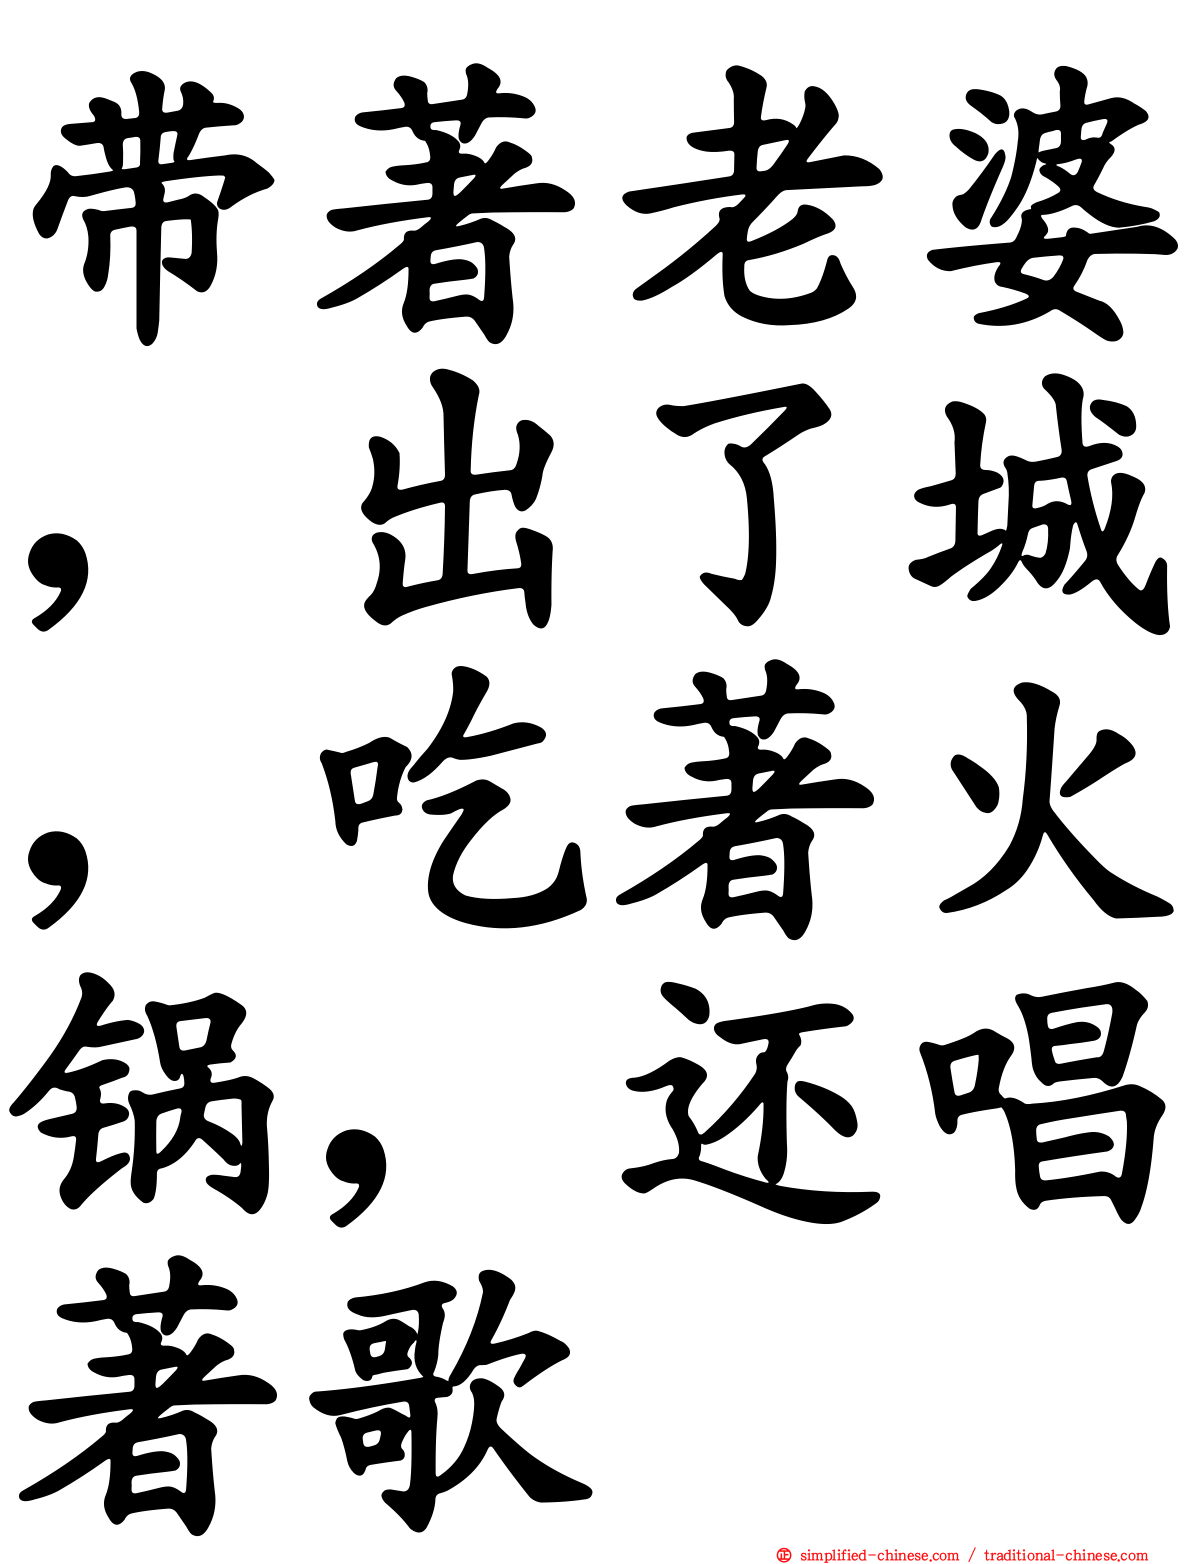 带著老婆
，出了城
，吃著火
锅，还唱
著歌
㊣ simplified-chinese.com / traditional-chinese.com